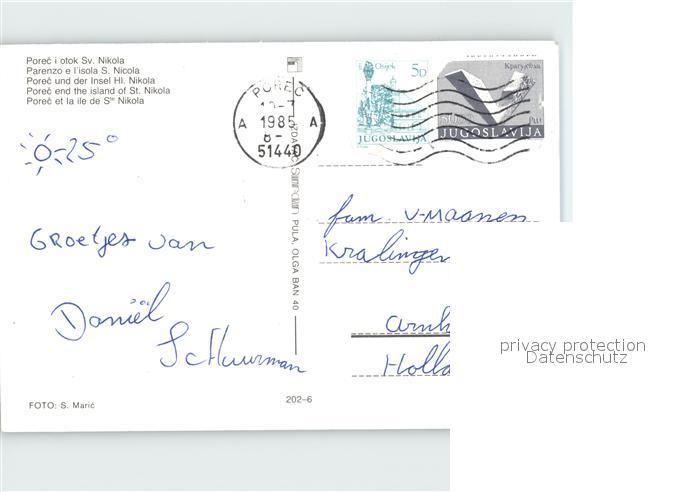 Poreč i otok Sv. Nikola
Parenzo e l'isola S. Nicola
Poreč und der Insel Hl. Nikola
Poreč end the island of St. Nikola
Poreč et la ile de Ste Nikola
25°
Groetjes van
Daniël
Schuurman
FOTO: S. Marić
202-6
PULA, OLGA BAN 40
POREČ
1985
A A
8-
51440
Osijek
5D
JUGOSLAVIJA
Крагујевац
JUGOSLAVIJA
fam. v-maanen
Kralingen
arnh
Holla
privacy protection
Datenschutz